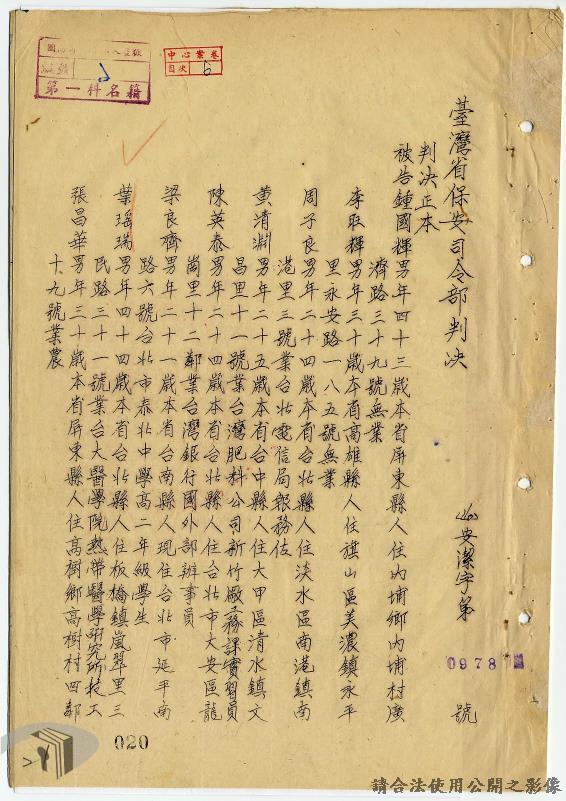 臺灣省保安司令部判決
安潔字第
0978
號
判決正本
被告鍾國輝男年四十三歲本省屏東縣人住內埔鄉內埔村廣
濟路三十九號無業
李旺輝男年三十歲本省高雄縣人住旗山區美濃鎮永平
里永安路一八五號無業
周子良男年二十四歲本省台北縣人住淡水區南港鎮南
港里三號業台北電信局報務佐
黄清淵男年二十五歲本省台中縣人住大甲區清水鎮文
昌里十一號業台灣肥料公司新竹廠工務課實習員
陳英泰男年二十四歲本省台北縣人住台北市大安區龍
崗里十二鄰業台灣銀行國外部辦事員
梁良齊男年二十一歲本省台南縣人現住台北市延平南
路六號台北市泰北中學高二年級學生
葉瑶瑞男年四十四歲本省台北縣人住板橋鎮嵐翠里三
民路三十一號業台大醫學院熱帶醫學研究所技工
張昌華男年三十歲本省屏東縣人住高樹鄉高樹村四鄰
十九號業農
中心業卷
目次
6
第一科名籍
020
請合法使用公開之影像